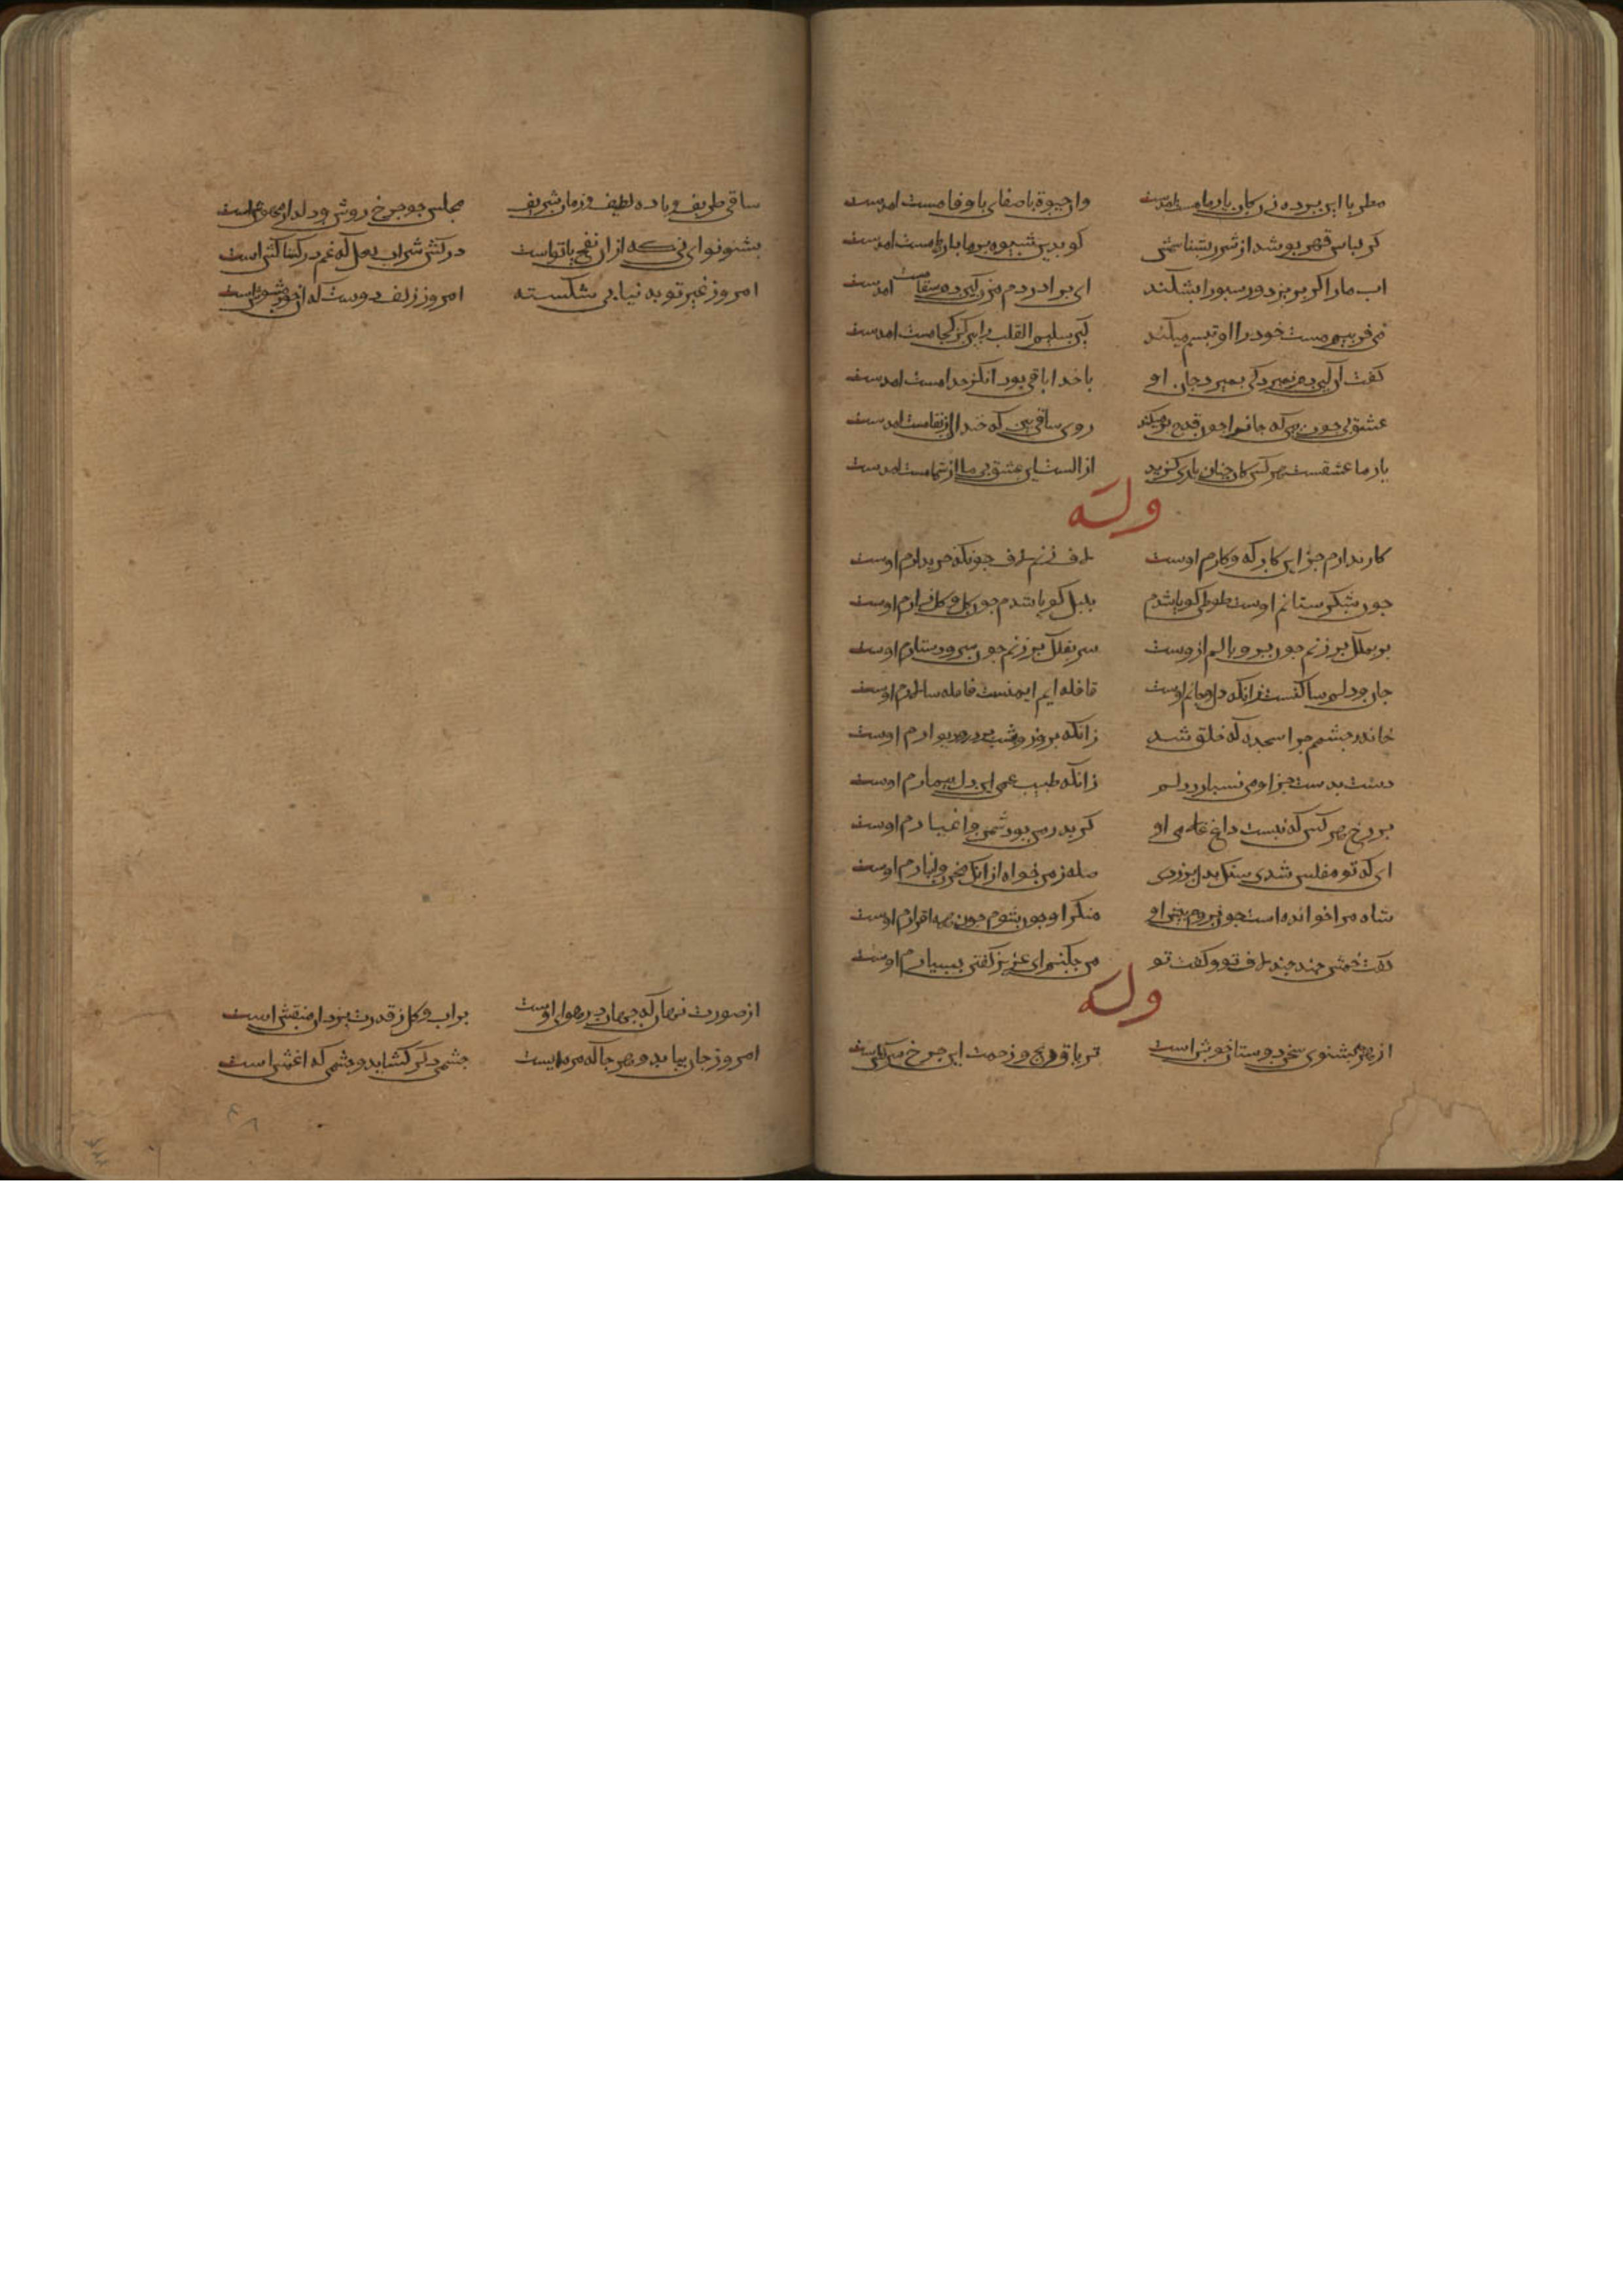 مطربا این پرده زن کان یار ما مست امدست وان حیوة باصفای باوفا مست امدست
کر لباس قهر پوشد از شرر بشناسمش کو بدین شیوه بر ما بارها مست امدست
اب مارا کر بریزد ور سبورا بشکند ای برادر دم مزن کین دم سقا مست امدست
می فریبم مست خود را او تبسم میکند کین سلیم القلب را بین کز کجا مست امدست
کفت ان کین دم نمیرد کی بمیرد جان او با خدا باقی بود انکز خدا مست امدست
عشق بی چون بین که جانرا چون قدح پر میکند روی ساقی بین که خندان از بقا مست امدست
یار ما عشقست هر کس کان چنان یاری کزید از الست این عشق بی ما از شما مست امدست
وله
کار ندارم جز این کارکه و کارم اوست لاف زنم لاف چونکه خریدارم اوست
چون شکرستانم اوست طوطی کویا شدم بلبل کویا شدم چون کل و کلزارم اوست
بر بملک بر زنم چون پر و بالم ازوست سر بفلک بر زنم چون سر و دستارم اوست
جان و دلم ساکنست زانکه دل و جانم اوست قافله ایم ایمنست قافله سالارم اوست
خانه چشمم چرا سجده که خلق شد زانکه بروز و شب بر در و دیوارم اوست
دست بدست جز او می نسپارد دلم زانکه طبیب غم این دل بیمارم اوست
بر رخ هر کس که نیست داغ غلامی او کر پدر من بود دشمن و اغیارم اوست
ای که تو مفلس شدی سنک بدل برزدی صله ز من خواه از انک مخزن و انبارم اوست
شاه مرا خوانده است چون نروم پیش او منکر او چون شوم چون همه اقرارم اوست
کفت خمش چند چند لاف تو و کفت تو من چکنم ای عزیز کفتن بسیارم اوست
وله
از بشنوی سخن دوستان خوش است تریاق و رنج و زحمت این چرخ سرکش است
ساقی ظریف و باده لطیف و زمان شریف مجلس چو چرخ روشن و دلدار مهوش است
بشنو نوای نی که از ان نفخ بانواست درکش شراب لعل که غم درکشاکش است
امروز غیر توبه نیابی شکسته امروز زلف دوست که از مشوش است
از صورت نهان که جهان در هوای اوست بر اب و کل ز قدرت یزدان منقش است
امروز جان بیابد و هر جا که مرده ایست چشمی دکر کشاید و چشمی که اغمش است